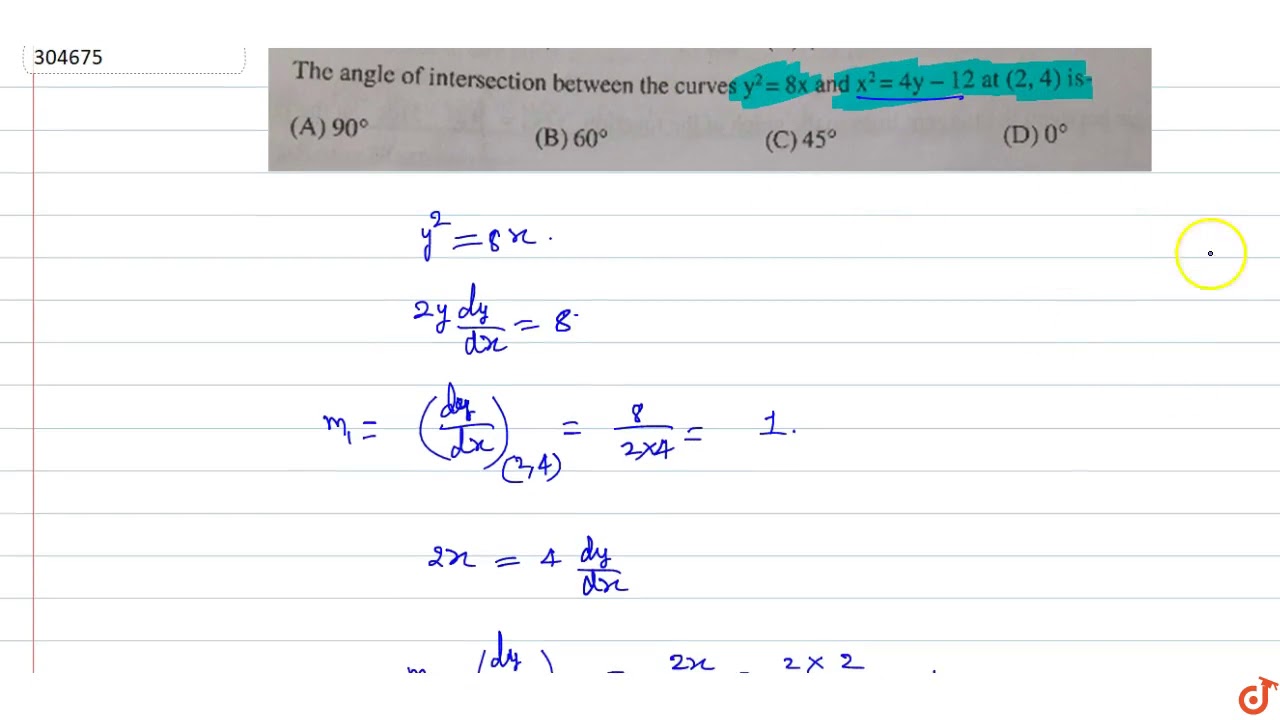 304675
The angle of intersection between the curves y² = 8x and x² = 4y – 12 at (2, 4) is-
(A) 90° (B) 60° (C) 45° (D) 0°
y² = 8x.
2y dy/dx = 8
m₁ = (dy/dx)(2,4) = 8/(2×4) = 1.
2x = 4 dy/dx
(dy ) = 2x = 2 × 2